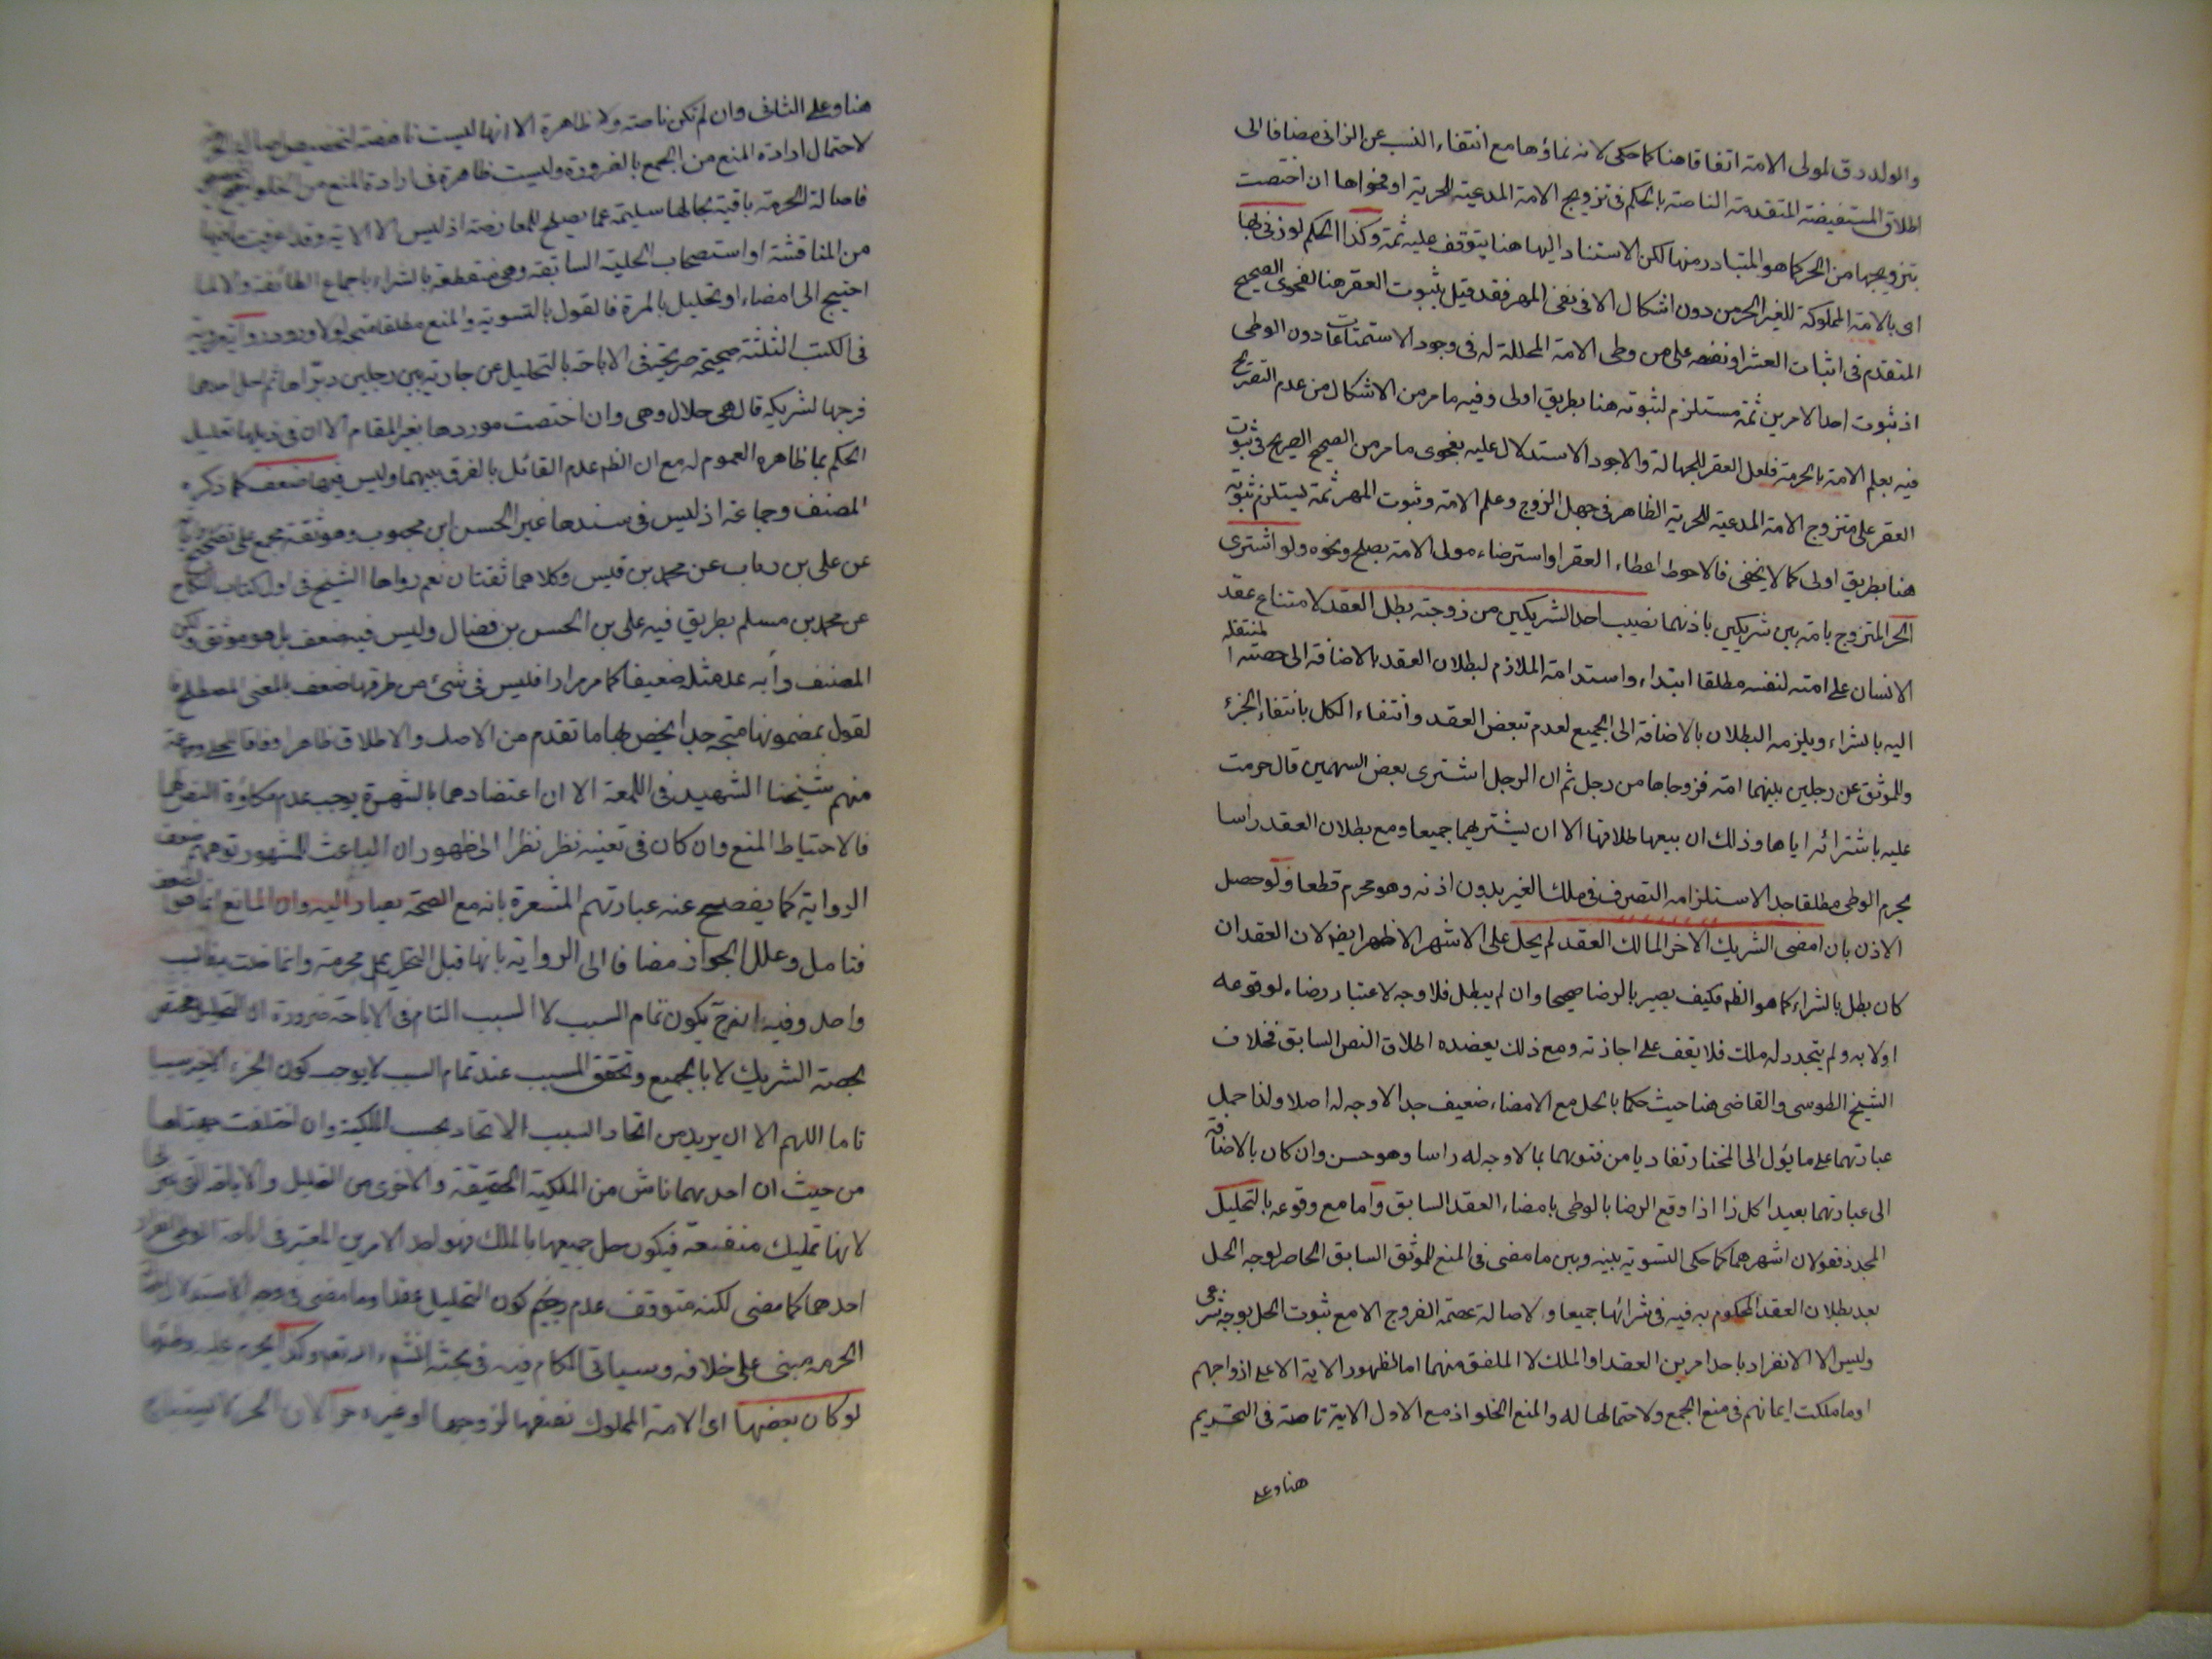 والولد رق لمولى الامة اتفاقا هنا كما حكى لانه نماؤها مع انتفاء النسب عن الزانى مضافا الى
اطلاق المستفيضة المتقدمة الناصة بالحكم فى تزويج الامة المدعية للحرية او فحواها ان اختصت
بتزويجها من الحر كما هو المتبادر منها لكن الاستناد اليها هنا يتوقف عليه ثمة وكذا الحكم لو زنى بها
اى بالامة المملوكة للغير الحر من دون اشكال الا فى نفى المهر فقد قيل بثبوت العقر هنا لفحوى الصحيح
المتقدم فى اثبات العشر او نصفه على من وطى الامة المحللة له فى وجود الاستمتاعات دون الوطى
اذ ثبوت احد الامرين ثمة مستلزم لثبوته هنا بطريق اولى وفيه ما مر من الاشكال من عدم التصريح
فيه بعلم الامة بالحرمة فلعل العقر للجهالة والاجود الاستدلال عليه بفحوى ما مر من الصحيح الصريح فى ثبوت
العقر على متزوج الامة المدعية للحرية الظاهر فى جهل الزوج وعلم الامة وثبوت المهر ثمة يستلزم ثبوته
هنا بطريق اولى كما لا يخفى فالاحوط اعطاء العقر او استرضاء مولى الامة بصلح ونحوه ولو اشترى
الحر المتزوج بامة بين شريكين باذنهما نصيب احد الشريكين من زوجته بطل العقد لامتناع عقد
الانسان على امته لنفسه مطلقا ابتداء واستدامة الملازم لبطلان العقد بالاضافة الى حصته المنتقلة
اليه بالشراء ويلزمه البطلان بالاضافة الى الجميع لعدم تبعض العقد وانتفاء الكل بانتفاء الجزء
وللموثق عن رجلين بينهما امة فزوجاها من رجل ثم ان الرجل اشترى بعض السهمين قال حرمت
عليه باشترائه اياها وذلك ان بيعها طلاقها الا ان يشتريهما جميعا ومع بطلان العقد راسا
يحرم الوطى مطلقا جدا لاستلزامه التصرف فى ملك الغير بدون اذنه وهو محرم قطعا ولو حصل
الاذن بان امضى الشريك الاخر المالك العقد لم يحل على الاشهر الاظهر ايضا لان العقد ان
كان بطل بالشراء كما هو الظم فكيف يصير بالرضا صحيحا وان لم يبطل فلا وجه لاعتبار رضاه لوقوعه
اولا به ولم يتجدد له ملك فلا يقف على اجازته ومع ذلك يعضده اطلاق النص السابق فخلاف
الشيخ الطوسى والقاضى هنا حيث حكما بالحل مع الامضاء ضعيف جدا لا وجه له اصلا ولذا حمل
عبارتهما على ما يؤل الى المختار تفاديا من فتوىهما بما لا وجه له راسا وهو حسن وان كان بالاضافة
الى عبارتهما بعيدا كل ذا اذا وقع الرضا بالوطى بامضاء العقد السابق واما مع وقوعه بالتحليل
المجدد فقولان اشهرهما كما حكى التسوية بينه وبين ما مضى فى المنع للموثق السابق الحاصر لوجه الحل
بعد بطلان العقد المحكوم به فيه فى شرائها جميعا ولاصالة عصمة الفروج الا مع ثبوت الحل بوجه شرعى
وليس الا الانفراد باحد امرين العقد او الملك لا الملفق منهما اما لظهور الاية الا على ازواجهم
او ما ملكت ايمانهم فى منع الجمع ولاحتمالها له والمنع الخلو اذ مع الاول الاية ناصة فى التحريم
هنا وعلى
هنا وعلى الثانى وان لم تكن ناصة ولا ظاهرة الا انها ليست ناهضة لتخصيص اصالة
لاحتمال ارادة المنع من الجمع بالضرورة وليست ظاهرة فى ارادة المنع من الخلو
فاصالة الحرمة باقية بحالها سليمة عما يصلح للمعارضة اذ ليس الا الاية وقد عرفت ما فيها
من المناقشة او استصحاب الحلية السابقة وهى منقطعة بالشراء باجماع الطائفة والا لما
احتيج الى امضاء او تحليل بالمرة فالقول بالتسوية والمنع مطلقا متجه لولا ورود رواية مروية
فى الكتب الثلثة صحيحة صريحة فى الاباحة بالتحليل عن جارية بين رجلين دبراها ثم احل احدهما
فرجها لشريكه قال هى حلال وهى وان اختصت موردها بغير المقام الا ان فى ذيلها تعليل
الحكم بما ظاهره العموم له مع ان الظم عدم القائل بالفرق بينهما وليس فيها ضعف كما ذكره
المصنف وجماعة اذ ليس فى سندها غير الحسن ابن محبوب وهو ثقة مجمع على تصحيح
عن على بن رباب عن محمد بن قيس وكلاهما ثقتان نعم رواها الشيخ فى اول كتاب النكاح
عن محمد بن مسلم بطريق فيه على بن الحسن بن فضال وليس فيه ضعف بل هو موثق ولكن
المصنف دأبه عد مثله ضعيفا كما مر مرارا فليس فى شئ من طرقها ضعف بالمعنى المصطلح
لقول بمضمونها متجه جدا يخص بها ما تقدم من الاصل والاطلاق ظاهرا وفاقا للحلى وجماعة
منهم شيخنا الشهيد فى اللمعة الا ان اعتضادهما بالشهرة يوجب عدم مكاؤة النص لهما
فالاحتياط المنع وان كان فى تعينه نظر نظرا الى ظهور ان الباعث للمشهور توهمهم ضعف
الرواية كما يفصح عنه عبارتهم المشعرة بانه مع الصحة يصار اليه وان المانع انما هو الضعف
فتامل وعلل الجواز مضافا الى الرواية بانها قبل التحليل محرمة وانما حلت بسبب
واحد وفيه انه ح يكون تمام السبب لا السبب التام فى الاباحة ضرورة ان التحليل مختص
بحصة الشريك لا بالجميع وتحقق المسبب عند تمام السبب لا يوجب كون الجزء الاخير سببا
تاما اللهم الا ان يريد من اتحاد السبب الاتحاد بحسب الملكية وان اختلفت جهتاها
من حيث ان احديهما ناش من الملكية الحقيقة والاخرى من التحليل والاباحة
لانها تمليك منفعة فيكون حل جميعها بالملك فهو احد الامرين المعتبر فى اباحة الوطى انفراد
احدهما كما مضى لكنه متوقف عدم كون التحليل عقدا وما مضى فى وجه الاستدلال
الحرمة مبنى على خلافه وسياتى الكلام فيه فى بحثه انشاء الله تعالى وكذا يحرم عليه وطئها
لو كان بعضها اى الامة المملوك نصفها لزوجها او غيره حرا لان الحر لا يستباح